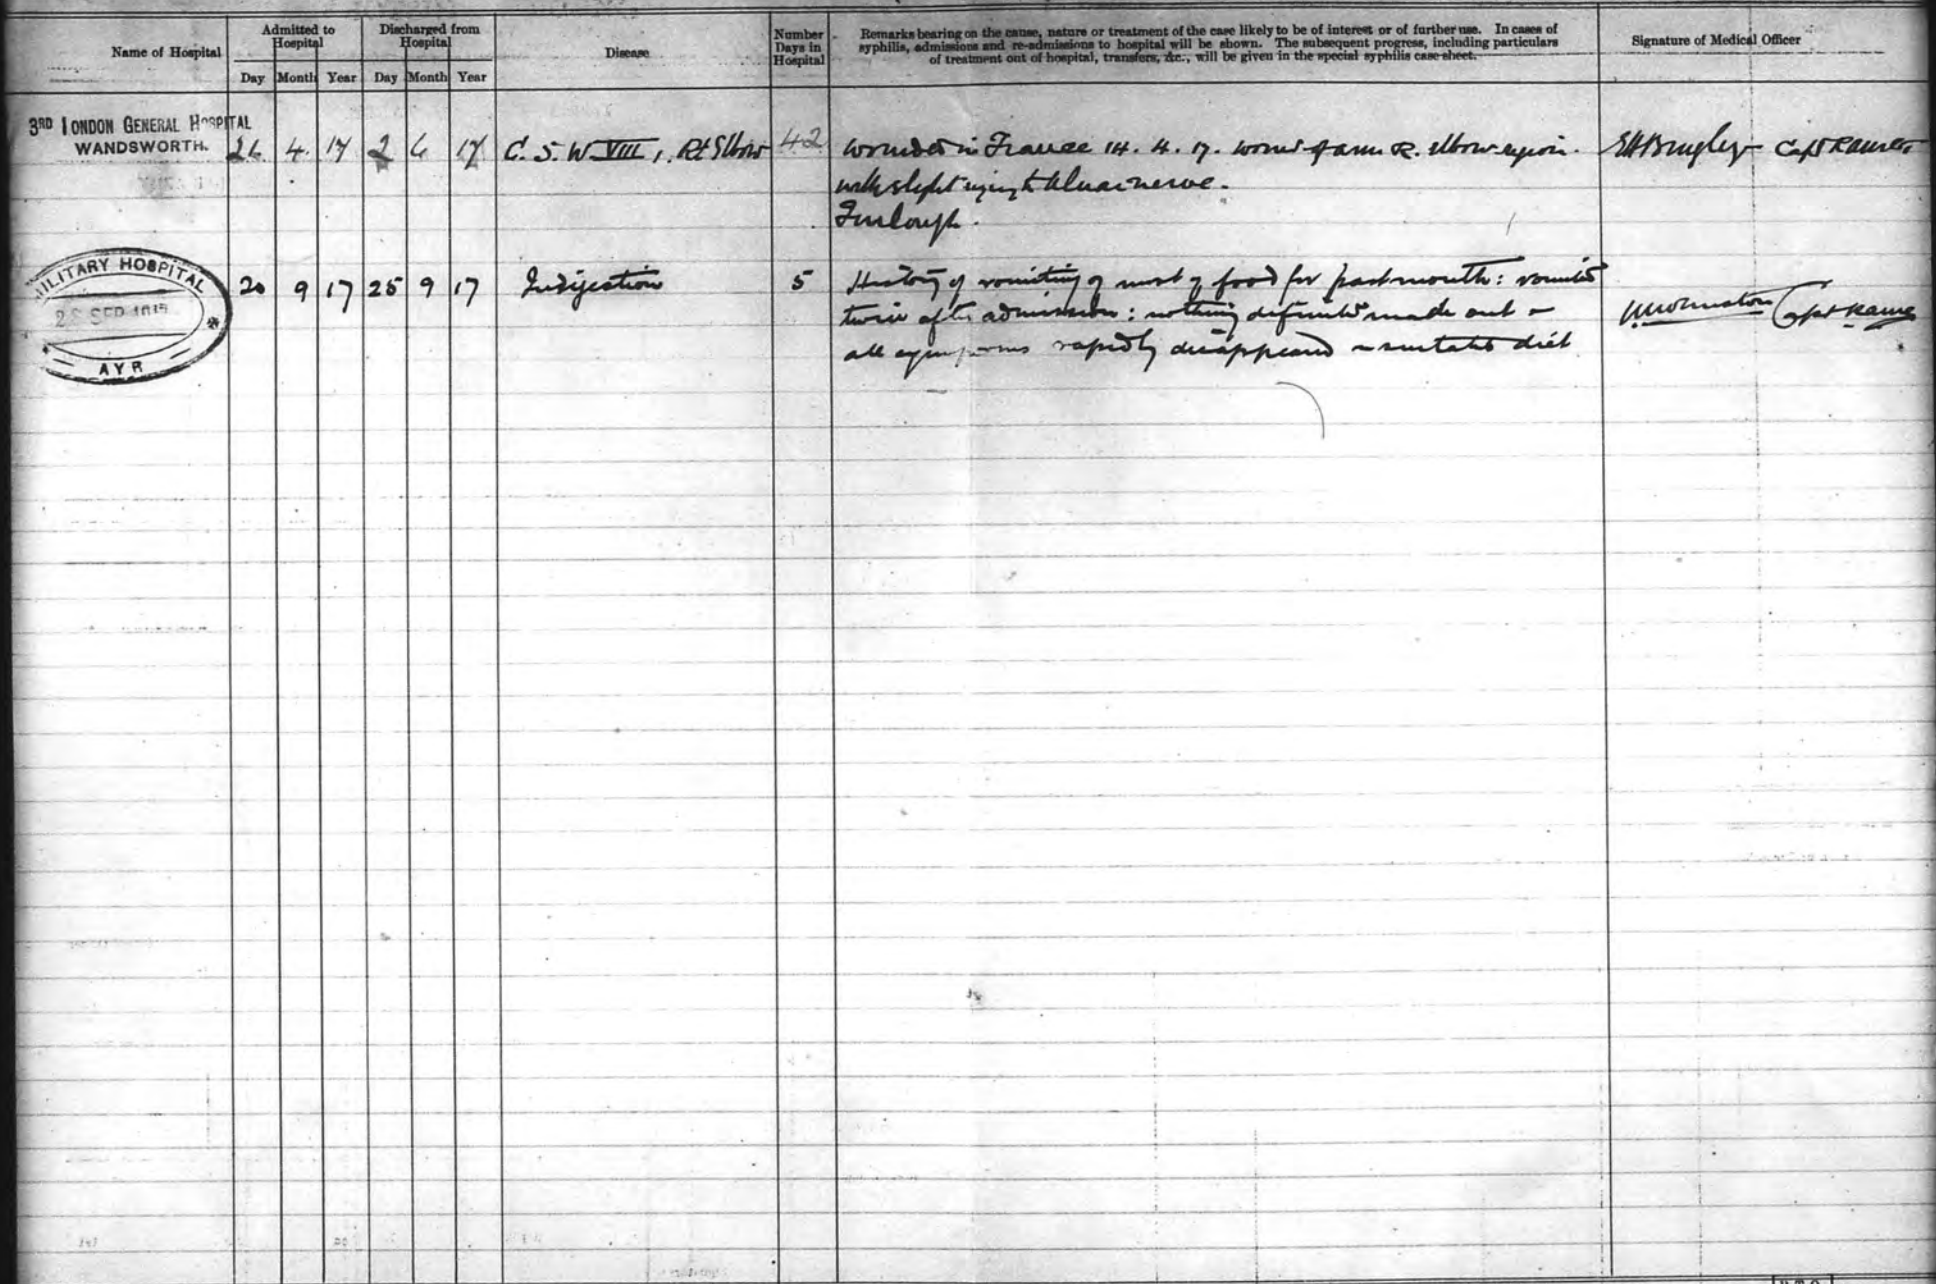 Name of Hospital
Admitted to Hospital
Discharged from Hospital
Disease
Number Days in Hospital
Remarks bearing on the cause, nature or treatment of the case likely to be of interest or of further use. In cases of
syphilis, admissions and re-admissions to hospital will be shown. The subsequent progress, including particulars
of treatment out of hospital, transfers, &c., will be given in the special syphilis case-sheet.
Signature of Medical Officer
Day Month Year Day Month Year
3RD LONDON GENERAL HOSPITAL
WANDSWORTH.
4 17 2 6 17 G. S. W VIII, Rt Elbow 42 Wounded in France 14. 4. 17. wound of arm R. elbow region.
with slight injury to ulnar nerve.
Furlough.
MILITARY HOSPITAL
SEP
AYR
20 9 17 25 9 17 Indigestion 5 History of vomiting of most of food for past month: vomited
twice after admission: nothing definite made out –
all symptoms rapidly disappeared suitable diet
Capt